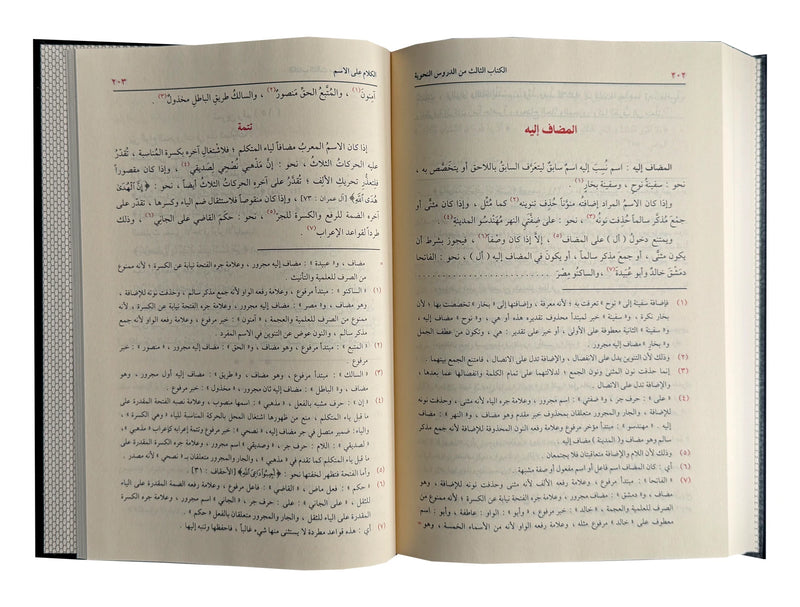 ٢٠٢
الكتاب الثالث من الدروس النحوية
المضاف إليه
المضاف إليه : اسم نُسِبَ إليه اسمٌ سابقٌ ليتعرَّف السابقُ باللاحق أو يتخصَّص به ،
نحو : سفينةُ نوحٍ ، وسفينة بخارٍ(١) .
وإذا كان الاسمُ المراد إضافته منوَّناً حُذِف تنوينه(٢) كما مُثِّل ، وإذا كان مثنَّى أو
جمعَ مذكَّر سالماً حُذفت نونُه(٣) ، نحو : على ضِفَّتَيِ النهرِ مُهندِسُو المدينةِ(٤) .
ويمتنع دخول ( أل ) على المضاف(٥) ، إلاَّ إذا كان وصفاً(٦) ، فيجوز بشرط أن
يكون مثنَّى ، أو جمعَ مذكر سالماً ، أو يكونَ في المضاف إليه ( أل ) ، نحو : الفاتحا
دمشقَ خالدٌ وأبو عُبَيدةَ(٧) . والساكنُو مِصرَ
(١) فإضافة سفينة إلى « نوح » تعرفت به ؛ لأنه معرفة ، وإضافتها إلى « بخار » تخصصت بها ؛ لأنه
نكرة ، و« سفينة » خبر لمبتدأ محذوف تقديره هذه أو هي ، و« نوح » مضاف إليه مجرور ،
و« سفينة » الثانية معطوفة على الأولى ، أو خبر على تقدير : هي ، وتكون من عطف الجمل
و« بخار » مضاف إليه مجرور .
(٢) وذلك لأن التنوين يدل على الانفصال ، والإضافة تدل على الاتصال ، فامتنع الجمع بينهما .
(٣) إنما حذفت نون المثنى ونون الجمع ؛ لدلالتهما على تمام الكلمة وانفصالها عما بعدها ،
والإضافة تدل على الاتصال .
(٤) « على » : حرف جر ، و« ضفتي » : اسم مجرور ، وعلامة جره الياء لأنه مثنى ، وحذفت نونه
للإضافة ، والجار والمجرور متعلقان بمحذوف خبر مقدم وهو مضاف ، و« النهر » مضاف
إليه مجرور . « مهندسو » : مبتدأ مؤخر مرفوع ، وعلامة رفعه الواو لأنه جمع مذكر
سالم وهو مضاف و( المدينة ) مضاف إليه .
(٥) وذلك لأن اللام والإضافة متعاقبتان فلا يجتمعان .
(٦) أي : كان المضاف اسم فاعل أو اسم مفعول أو صفة مشبهة .
(٧) « الفاتحا » : مبتدأ مرفوع ، وعلامة رفعه الألف لأنه مثنى ، وحذفت نونه للإضافة ، وهو
مضاف ، و« دمشق » : مضاف إليه مجرور ، وعلامة جره الفتحة نيابة عن الكسرة ؛ لأنه ممنوع من
الصرف للعلمية والعجمة ، « خالد » : خبر مرفوع ، و« أبو » : الواو : عاطفة ، وأبو : اسم
معطوف على « خالد » مرفوع مثله ، وعلامة رفعه الواو لأنه من الأسماء الخمسة ، وهو =
الكلام على الاسم
٢٠٣
آمنونَ(١) ، والمُتَّبِعُ الحقِّ مَنصورٌ(٢) ، والسالكُ طريقِ الباطلِ مخذولٌ(٣) .
تتمة
إذا كان الاسمُ المعربُ مضافاً لياء المتكلم ؛ فلاشتغال آخره بكسرة المُناسبة ، تُقدَّرُ
عليه الحركات الثلاثُ ، نحو : إنَّ مَذهبي نُصْحي لِصديقي(٤) ، وإذا كان مقصوراً
فلتعذُّر تحريكِ الألف ؛ تُقدَّر على آخره الحركات الثلاثُ أيضاً ، نحو : ﴿ إِنَّ ٱلْهُدَىٰ
هُدَى ٱللَّهِ ﴾ [آل عمران : ٧٣] ، وإذا كان منقوصاً فلاستثقال ضم الياء وكسرها ، تقدَّر على
آخره الضمة للرفع والكسرة للجر(٥) ، نحو : حكم القاضي على الجاني(٦) ، وذلك
طرداً لقواعد الإعراب(٧) .
= مضاف ، و« عبيدة » : مضاف إليه مجرور ، وعلامة جره الفتحة نيابة عن الكسرة ؛ لأنه ممنوع
من الصرف للعلمية والتأنيث .
(١) « الساكنو » : مبتدأ مرفوع ، وعلامة رفعه الواو لأنه جمع مذكر سالم ، وحذفت نونه للإضافة ،
وهو مضاف ، و« مصر » : مضاف إليه مجرور ، وعلامة جره الفتحة نيابة عن الكسرة ؛ لأنه
ممنوع من الصرف للعلمية والعجمة ، « آمنون » : خبر مرفوع ، وعلامة رفعه الواو لأنه جمع
مذكر سالم ، والنون عوض عن التنوين في الاسم المفرد .
(٢) « المتبع » : مبتدأ مرفوع ، وهو مضاف ، و« الحق » : مضاف إليه مجرور ، « منصور » : خبر
مرفوع .
(٣) « السالك » : مبتدأ مرفوع ، وهو مضاف ، و« طريق » : مضاف إليه أول مجرور ، وهو
مضاف ، و« الباطل » : مضاف إليه ثان مجرور ، « مخذول » : خبر مرفوع .
(٤) « إن » : حرف مشبه بالفعل ، « مذهبي » : اسمها منصوب ، وعلامة نصبه الفتحة المقدرة على
ما قبل ياء المتكلم ، منع من ظهورها اشتغال المحل بالحركة المناسبة للياء ؛ وهي الكسرة ،
والياء : ضمير متصل في محل جر مضاف إليه ، « نصحي » : خبر مرفوع وتتمة إعرابه كإعراب « مذهبي » ،
« لصديقي » : اللام : حرف جر ، « وصديقي » اسم مجرور ، وعلامة جره الكسرة المقدرة على
ما قبل ياء المتكلم كما تقدم في « مذهبي » ، والجار والمجرور متعلقان بـ« نصحي » لأنه مصدر .
(٥) وأما الفتحة فتظهر لخفتها نحو : ﴿ أَجِيبُوا۟ دَاعِيَ ٱللَّهِ ﴾ [الأحقاف : ٣١] .
(٦) « حكم » : فعل ماض ، « القاضي » : فاعل مرفوع ، وعلامة رفعه الضمة المقدرة على الياء
للثقل ، « على » : حرف جر ، « الجاني » : اسم مجرور ، وعلامة جره الكسرة
المقدرة على الياء للثقل ، والجار والمجرور متعلقان بالفعل « حكم » .
(٧) أي : هذه قواعد مطردة لا يستثنى منها شيء غالباً ، فاحفظها وتنبه إليها .